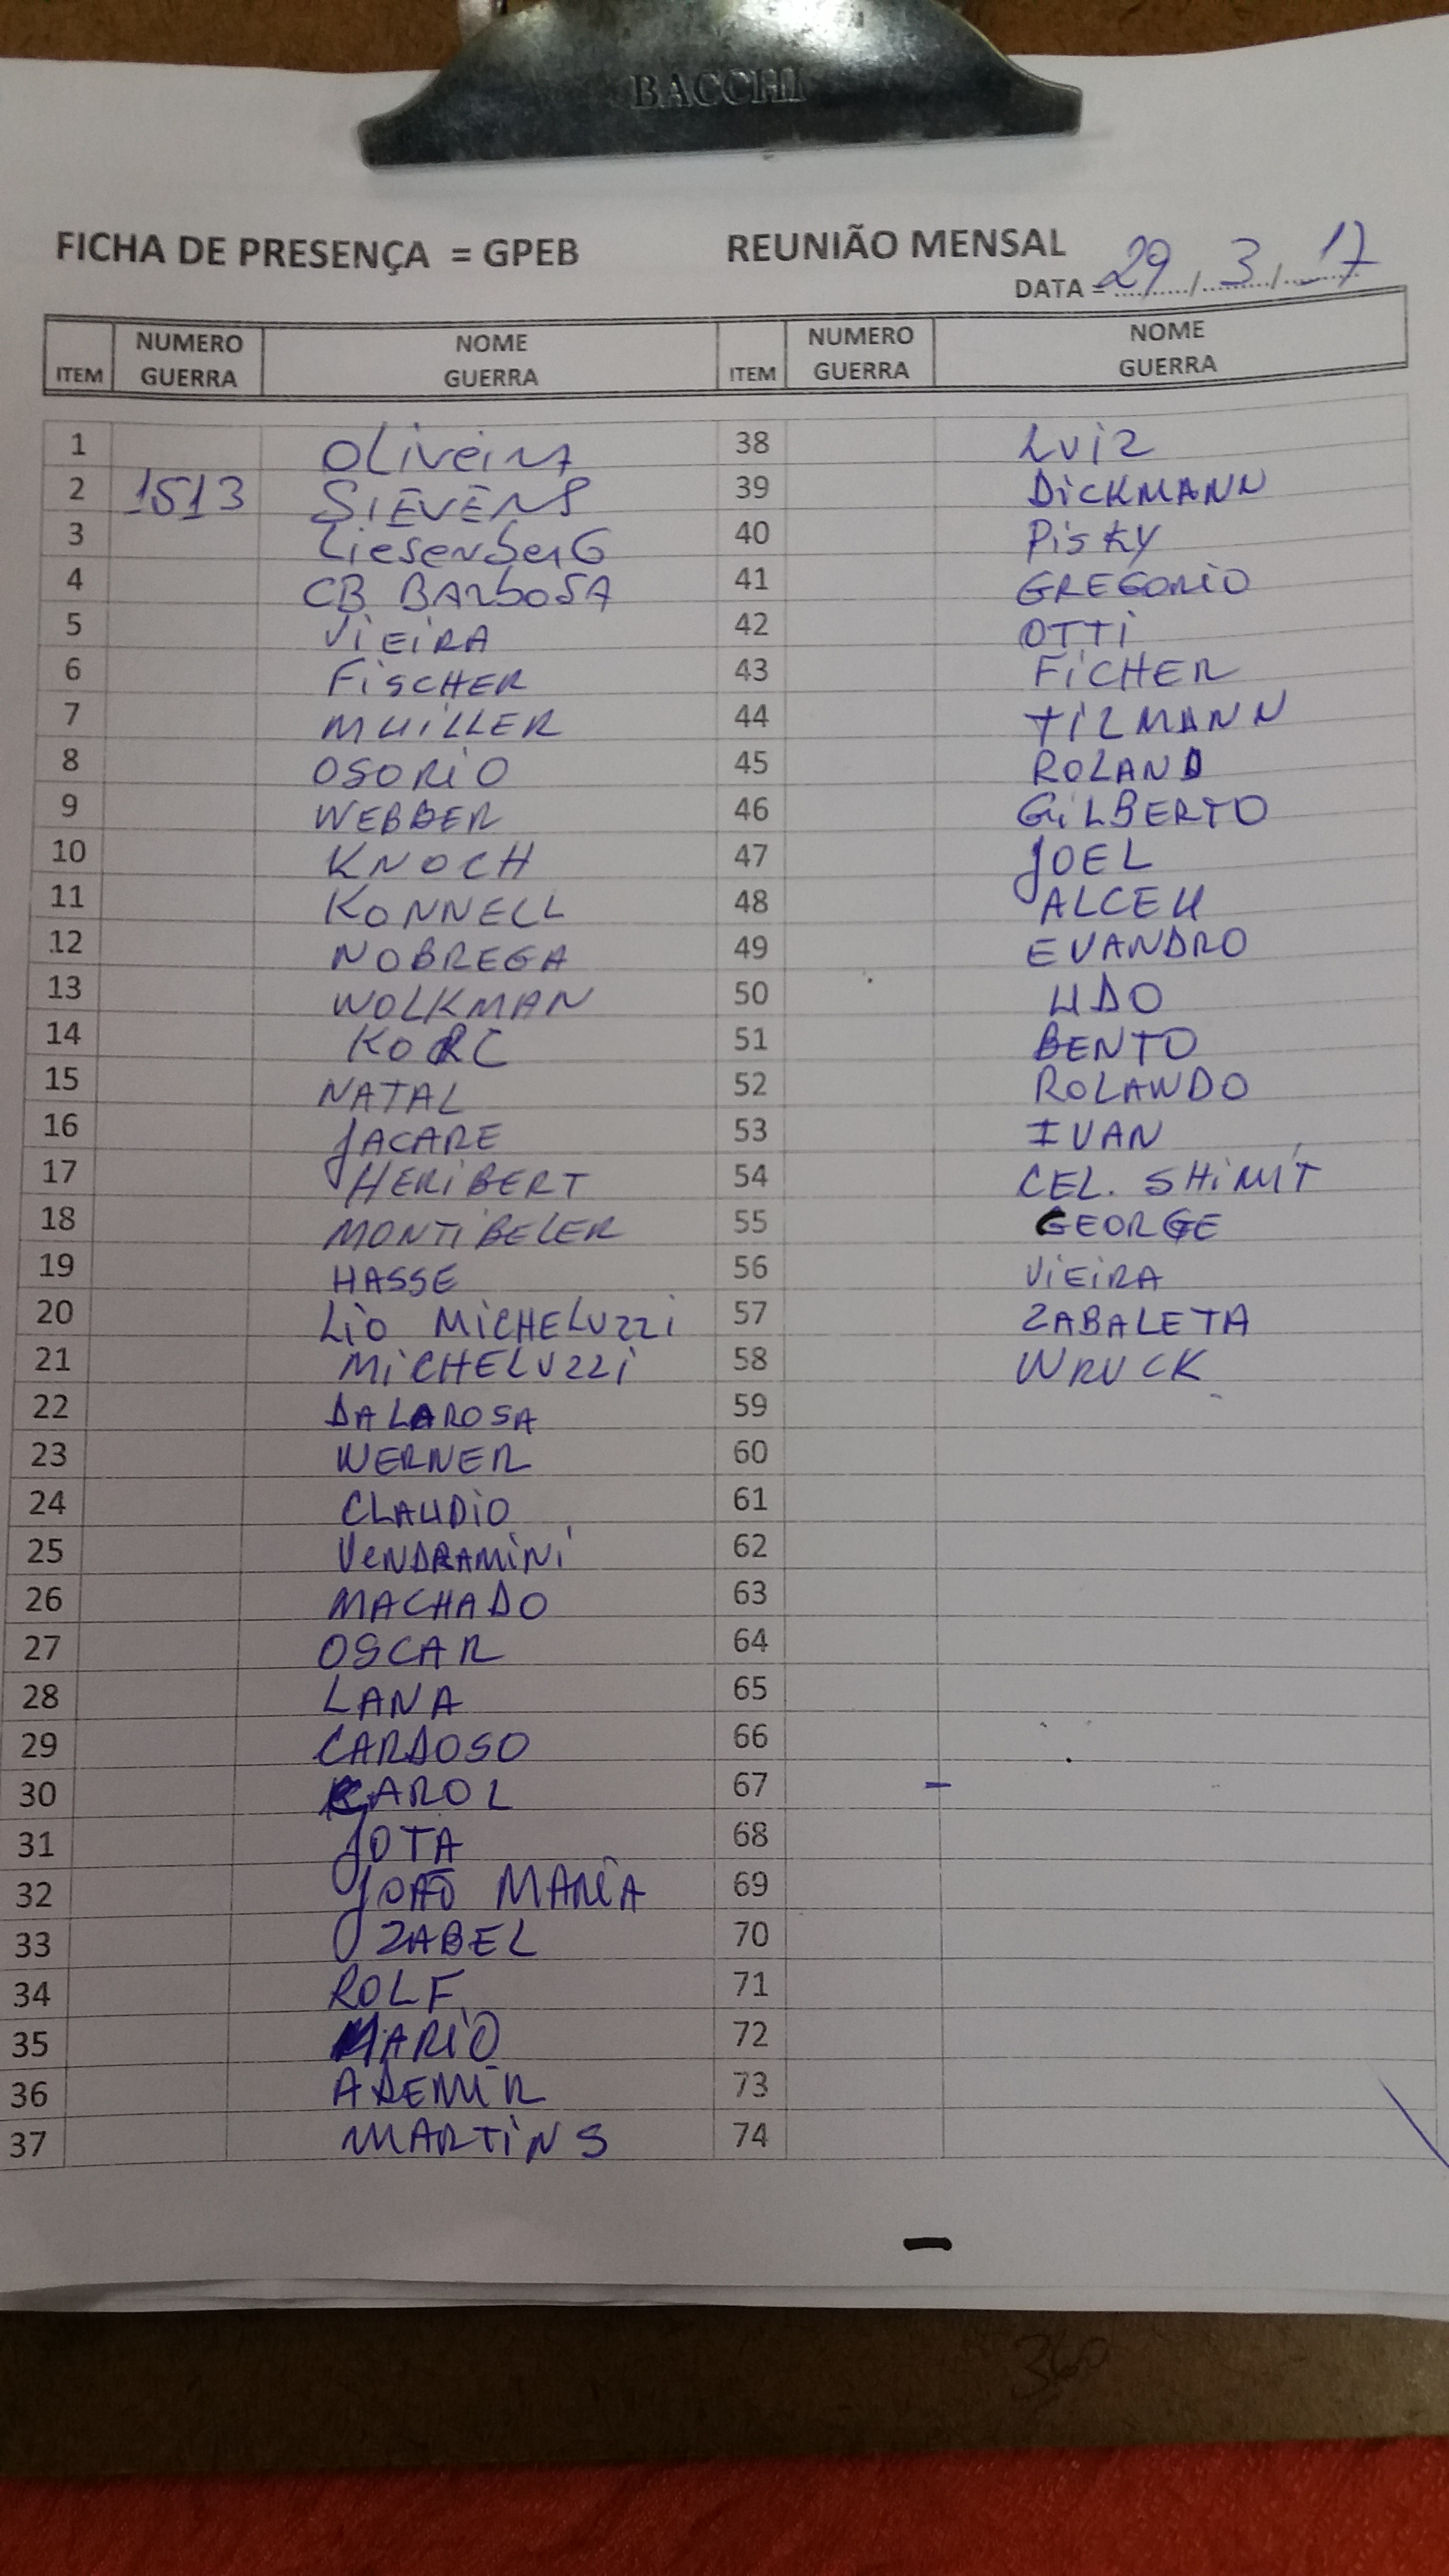 BACCHI
FICHA DE PRESENÇA = GPEB REUNIÃO MENSAL
DATA = 29/3/17
ITEM NUMERO GUERRA NOME GUERRA ITEM NUMERO GUERRA NOME GUERRA
1 OLiveira 38 LUiz
2 1513 SIEVENS 39 DiCKMANN
3 LiesenberG 40 PisKY
4 CB BARboSA 41 GREGORiO
5 ViEiRA 42 OTTi
6 FiSCHER 43 FiCHER
7 MUiLLER 44 TILMANN
8 OSORiO 45 ROLAND
9 WEBBER 46 GiLBERTO
10 KNOCH 47 JOEL
11 KONNELL 48 ALCEU
12 NOBREGA 49 EVANDRO
13 WOLKMAN 50 UDO
14 51 BENTO
15 NATAL 52 ROLANDO
16 JACARE 53 IVAN
17 HERiBERT 54 CEL. SHiMiT
18 MONTiBELER 55 GEORGE
19 HASSE 56 ViEiRA
20 Lio MiCHELUZZi 57 ZABALETA
21 MiCHELUZZi 58 WRUCK
22 DALAROSA 59
23 WERNER 60
24 CLAUDiO 61
25 VeNDRAMiNi 62
26 MACHADO 63
27 OSCAR 64
28 LANA 65
29 CARDOSO 66
30 KAROL 67
31 JOTA 68
32 JOÃO MARiA 69
33 ZABEL 70
34 ROLF 71
35 MARiO 72
36 ADEMiR 73
37 MARTiNS 74
360